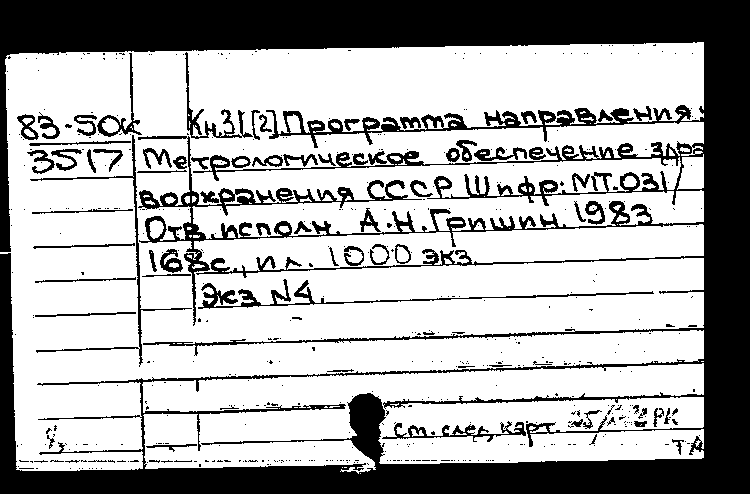 83-50к Кн.31.[2]. Программа направления
3517 Метрологическое обеспечение здра
воохранения СССР. Шифр: МТ.031/
Отв. исполн. А.Н.Гришин. 1983
168с., ил. 1000 экз.
Экз N4.
см. след. карт.